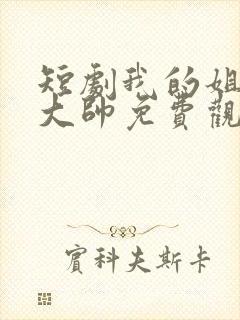 短劇我的姐
大帥免費觀
賓科夫斯卡